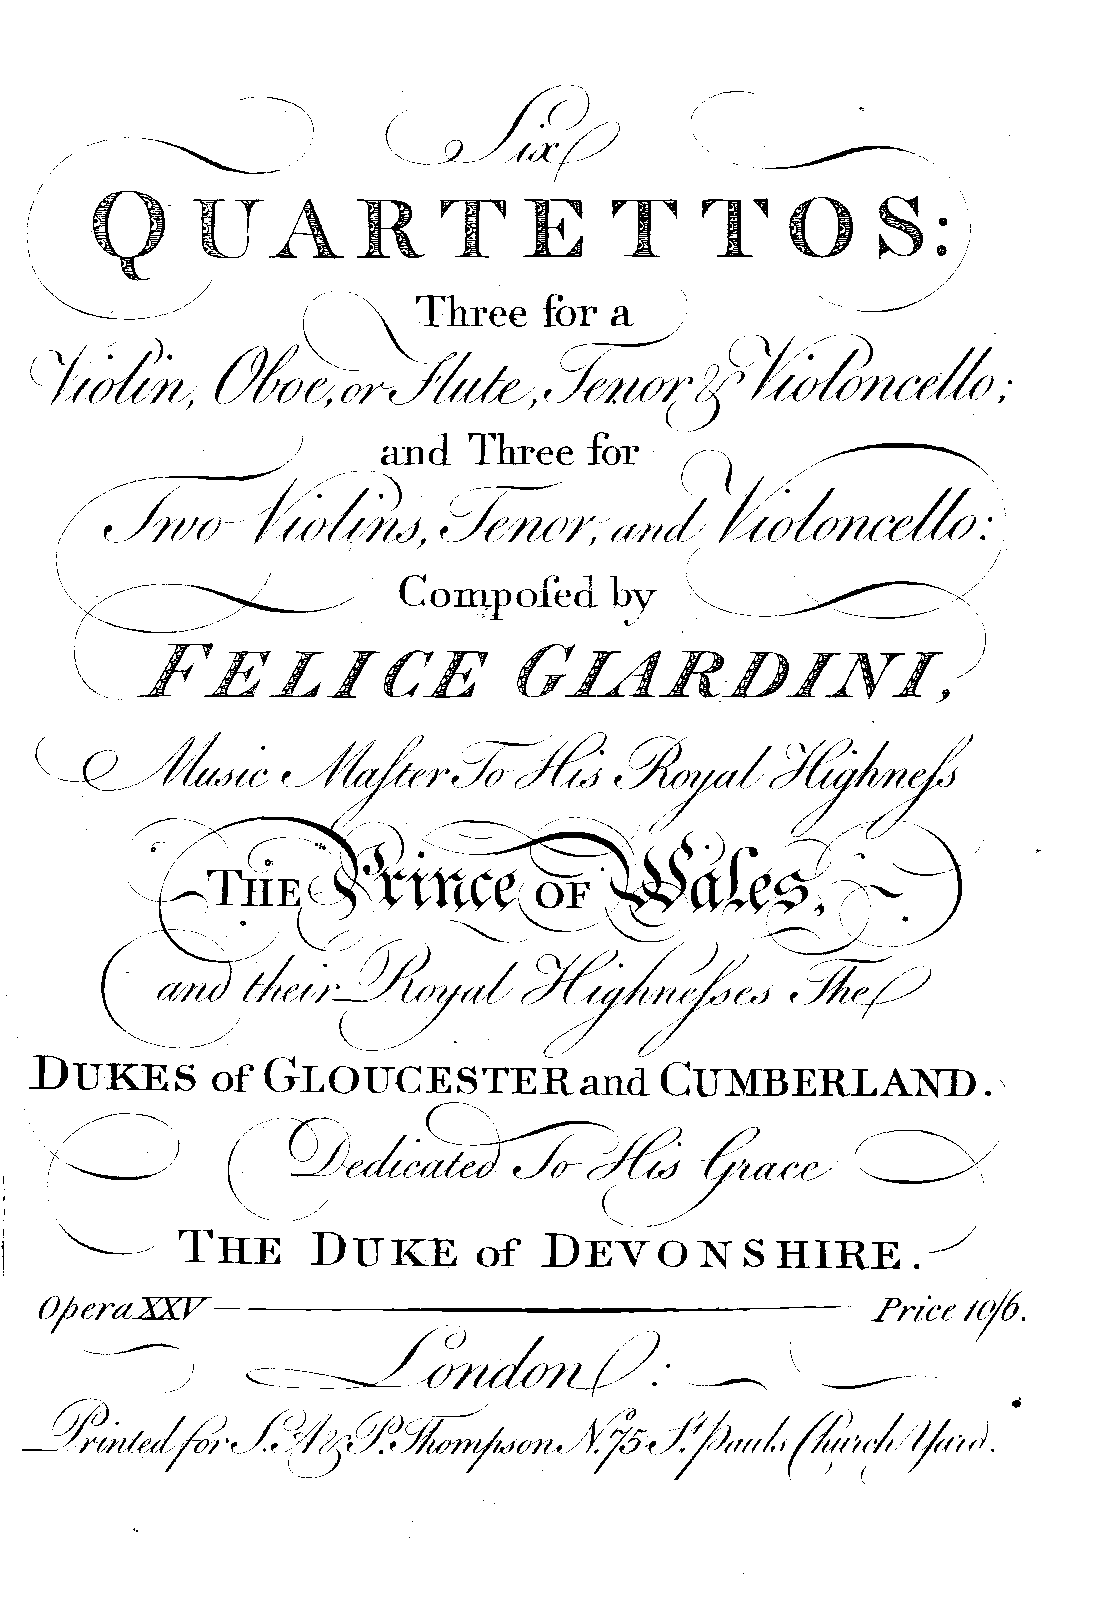 Six
QUARTETTOS:
Three for a
Violin, Oboe, or Flute, Tenor & Violoncello;
and Three for
Two Violins, Tenor, and Violoncello:
Compoſed by
FELICE GIARDINI,
Music Maſter To His Royal Highneſs
THE Prince OF Wales,
and their Royal Highneſses The
DUKES of GLOUCESTER and CUMBERLAND.
Dedicated To His Grace
THE DUKE of DEVONSHIRE.
Opera XXV Price 10/6.
London:
Printed for S. A & P. Thompson No. 75 St. Pauls Church Yard.